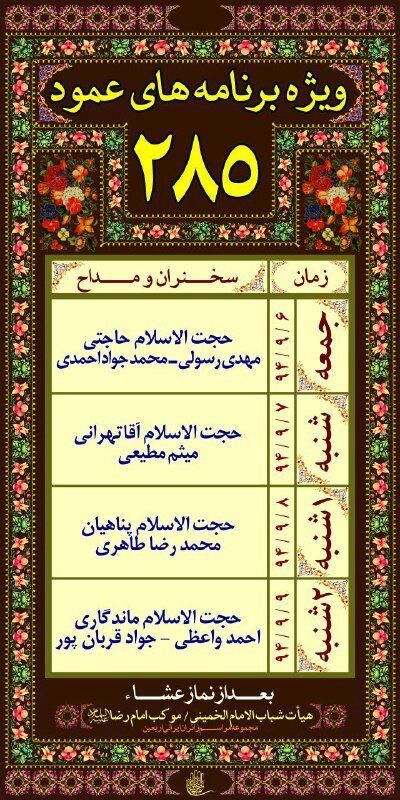 ویژه برنامه های عمود
۲۸۵
زمان
سخنران و مداح
جمعه
۹۴/۹/۶
حجت الاسلام حاجتی
مهدی رسولی - محمد جواد احمدی
شنبه
۹۴/۹/۷
حجت الاسلام آقاتهرانی
میثم مطیعی
۱شنبه
۹۴/۹/۸
حجت الاسلام پناهیان
محمد رضا طاهری
۲شنبه
۹۴/۹/۹
حجت الاسلام ماندگاری
احمد واعظی - جواد قربان پور
بعد از نماز عشاء
هیأت شباب الامام الخمینی / موکب امام رضا